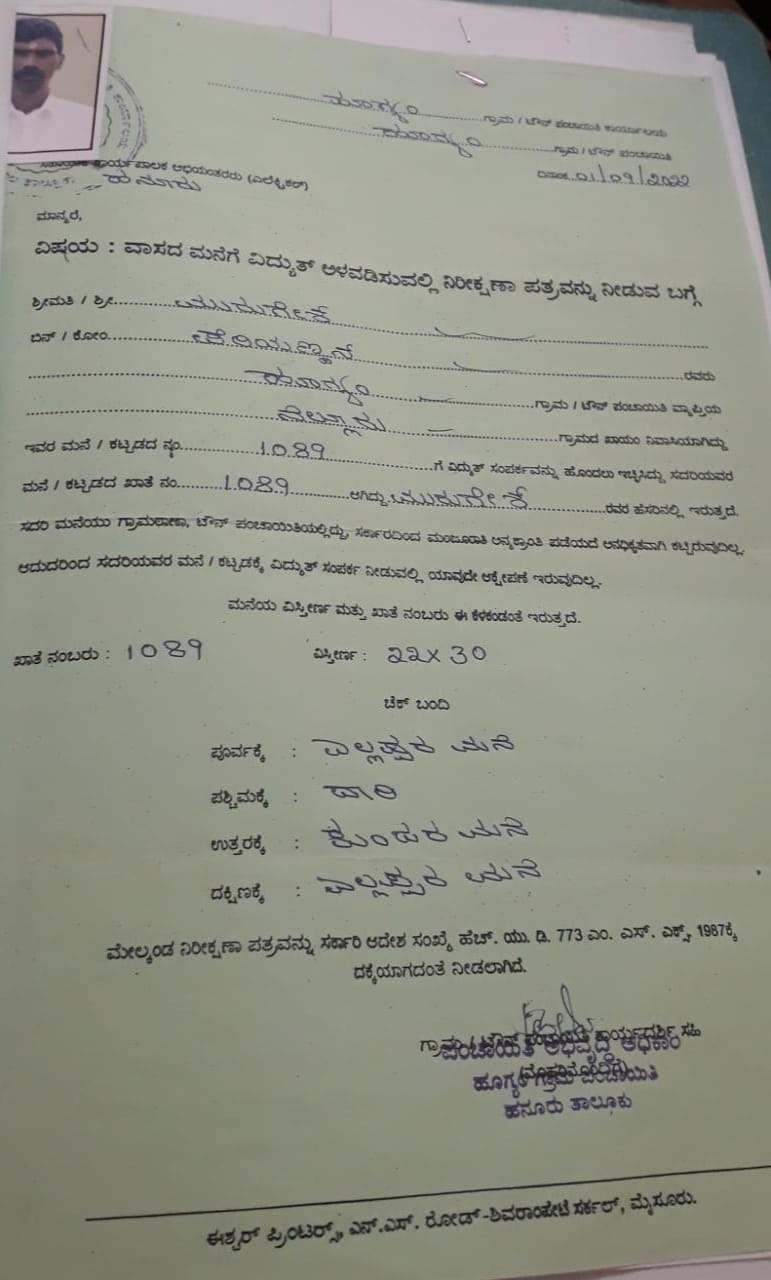 ಹೂಗ್ಯಂ ಗ್ರಾಮ / ಟೌನ್ ಪಂಚಾಯಿತಿ ಕಾರ್ಯಾಲಯ
ಹೂಗ್ಯಂ ಗ್ರಾಮ / ಟೌನ್ ಪಂಚಾಯಿತಿ
ದಿನಾಂಕ 01/09/2022
ಕಾರ್ಯಪಾಲಕ ಅಭಿಯಂತರರು (ಎಲೆಕ್ಟ್ರಿಕಲ್)
ಹನೂರು
ಮಾನ್ಯರೆ,
ವಿಷಯ : ವಾಸದ ಮನೆಗೆ ವಿದ್ಯುತ್ ಅಳವಡಿಸುವಲ್ಲಿ ನಿರೀಕ್ಷಣಾ ಪತ್ರವನ್ನು ನೀಡುವ ಬಗ್ಗೆ
ಶ್ರೀಮತಿ / ಶ್ರೀ ಮುರುಗೇಶ
ಬಿನ್ / ಕೋಂ ರವರು
ಹೂಗ್ಯಂ ಗ್ರಾಮ / ಟೌನ್ ಪಂಚಾಯಿತಿ ವ್ಯಾಪ್ತಿಯ
ಗ್ರಾಮದ ಖಾಯಂ ನಿವಾಸಿಯಾಗಿದ್ದು
ಇವರ ಮನೆ / ಕಟ್ಟಡದ ನಂ 1089 ಗೆ ವಿದ್ಯುತ್ ಸಂಪರ್ಕವನ್ನು ಹೊಂದಲು ಇಚ್ಛಿಸಿದ್ದು ಸದರಿಯವರ
ಮನೆ / ಕಟ್ಟಡದ ಖಾತೆ ನಂ 1089 ಆಗಿದ್ದು ಮುರುಗೇಶ ರವರ ಹೆಸರಿನಲ್ಲಿ ಇರುತ್ತದೆ.
ಸದರಿ ಮನೆಯು ಗ್ರಾಮಠಾಣಾ, ಟೌನ್ ಪಂಚಾಯಿತಿಯಲ್ಲಿದ್ದು, ಸರ್ಕಾರದಿಂದ ಮಂಜೂರಾತಿ ಅನ್ಯಕ್ರಾಂತಿ ಪಡೆಯದೆ ಅನಧಿಕೃತವಾಗಿ ಕಟ್ಟಿರುವುದಿಲ್ಲ.
ಆದುದರಿಂದ ಸದರಿಯವರ ಮನೆ / ಕಟ್ಟಡಕ್ಕೆ ವಿದ್ಯುತ್ ಸಂಪರ್ಕ ನೀಡುವಲ್ಲಿ ಯಾವುದೇ ಆಕ್ಷೇಪಣೆ ಇರುವುದಿಲ್ಲ.
ಮನೆಯ ವಿಸ್ತೀರ್ಣ ಮತ್ತು ಖಾತೆ ನಂಬರು ಈ ಕೆಳಕಂಡಂತೆ ಇರುತ್ತದೆ.
ಖಾತೆ ನಂಬರು : 1089 ವಿಸ್ತೀರ್ಣ : 22x30
ಚೆಕ್ ಬಂದಿ
ಪೂರ್ವಕ್ಕೆ : ಎಲ್ಲಪ್ಪರ ಮನೆ
ಪಶ್ಚಿಮಕ್ಕೆ : ದಾರಿ
ಉತ್ತರಕ್ಕೆ : ಮನೆ
ದಕ್ಷಿಣಕ್ಕೆ : ಎಲ್ಲಪ್ಪರ ಮನೆ
ಮೇಲ್ಕಂಡ ನಿರೀಕ್ಷಣಾ ಪತ್ರವನ್ನು ಸರ್ಕಾರಿ ಆದೇಶ ಸಂಖ್ಯೆ ಹೆಚ್. ಯು. ಡಿ. 773 ಎಂ. ಎಸ್. ಎಕ್ಸ್, 1987ಕ್ಕೆ
ದಕ್ಕೆಯಾಗದಂತೆ ನೀಡಲಾಗಿದೆ.
ಗ್ರಾಮ / ಟೌನ್ ಪಂಚಾಯಿತಿ ಕಾರ್ಯದರ್ಶಿ ಸಹಿ
ಪಂಚಾಯಿತಿ ಅಭಿವೃದ್ಧಿ ಅಧಿಕಾರಿ
(ಮೊಹರಿನೊಂದಿಗೆ)
ಹೂಗ್ಯಂ ಗ್ರಾಮ ಪಂಚಾಯಿತಿ
ಹನೂರು ತಾಲ್ಲೂಕು
ಈಶ್ವರ್ ಪ್ರಿಂಟರ್ಸ್, ಎನ್.ಎಸ್. ರೋಡ್-ಶಿವರಾಂಪೇಟೆ ಸರ್ಕಲ್, ಮೈಸೂರು.